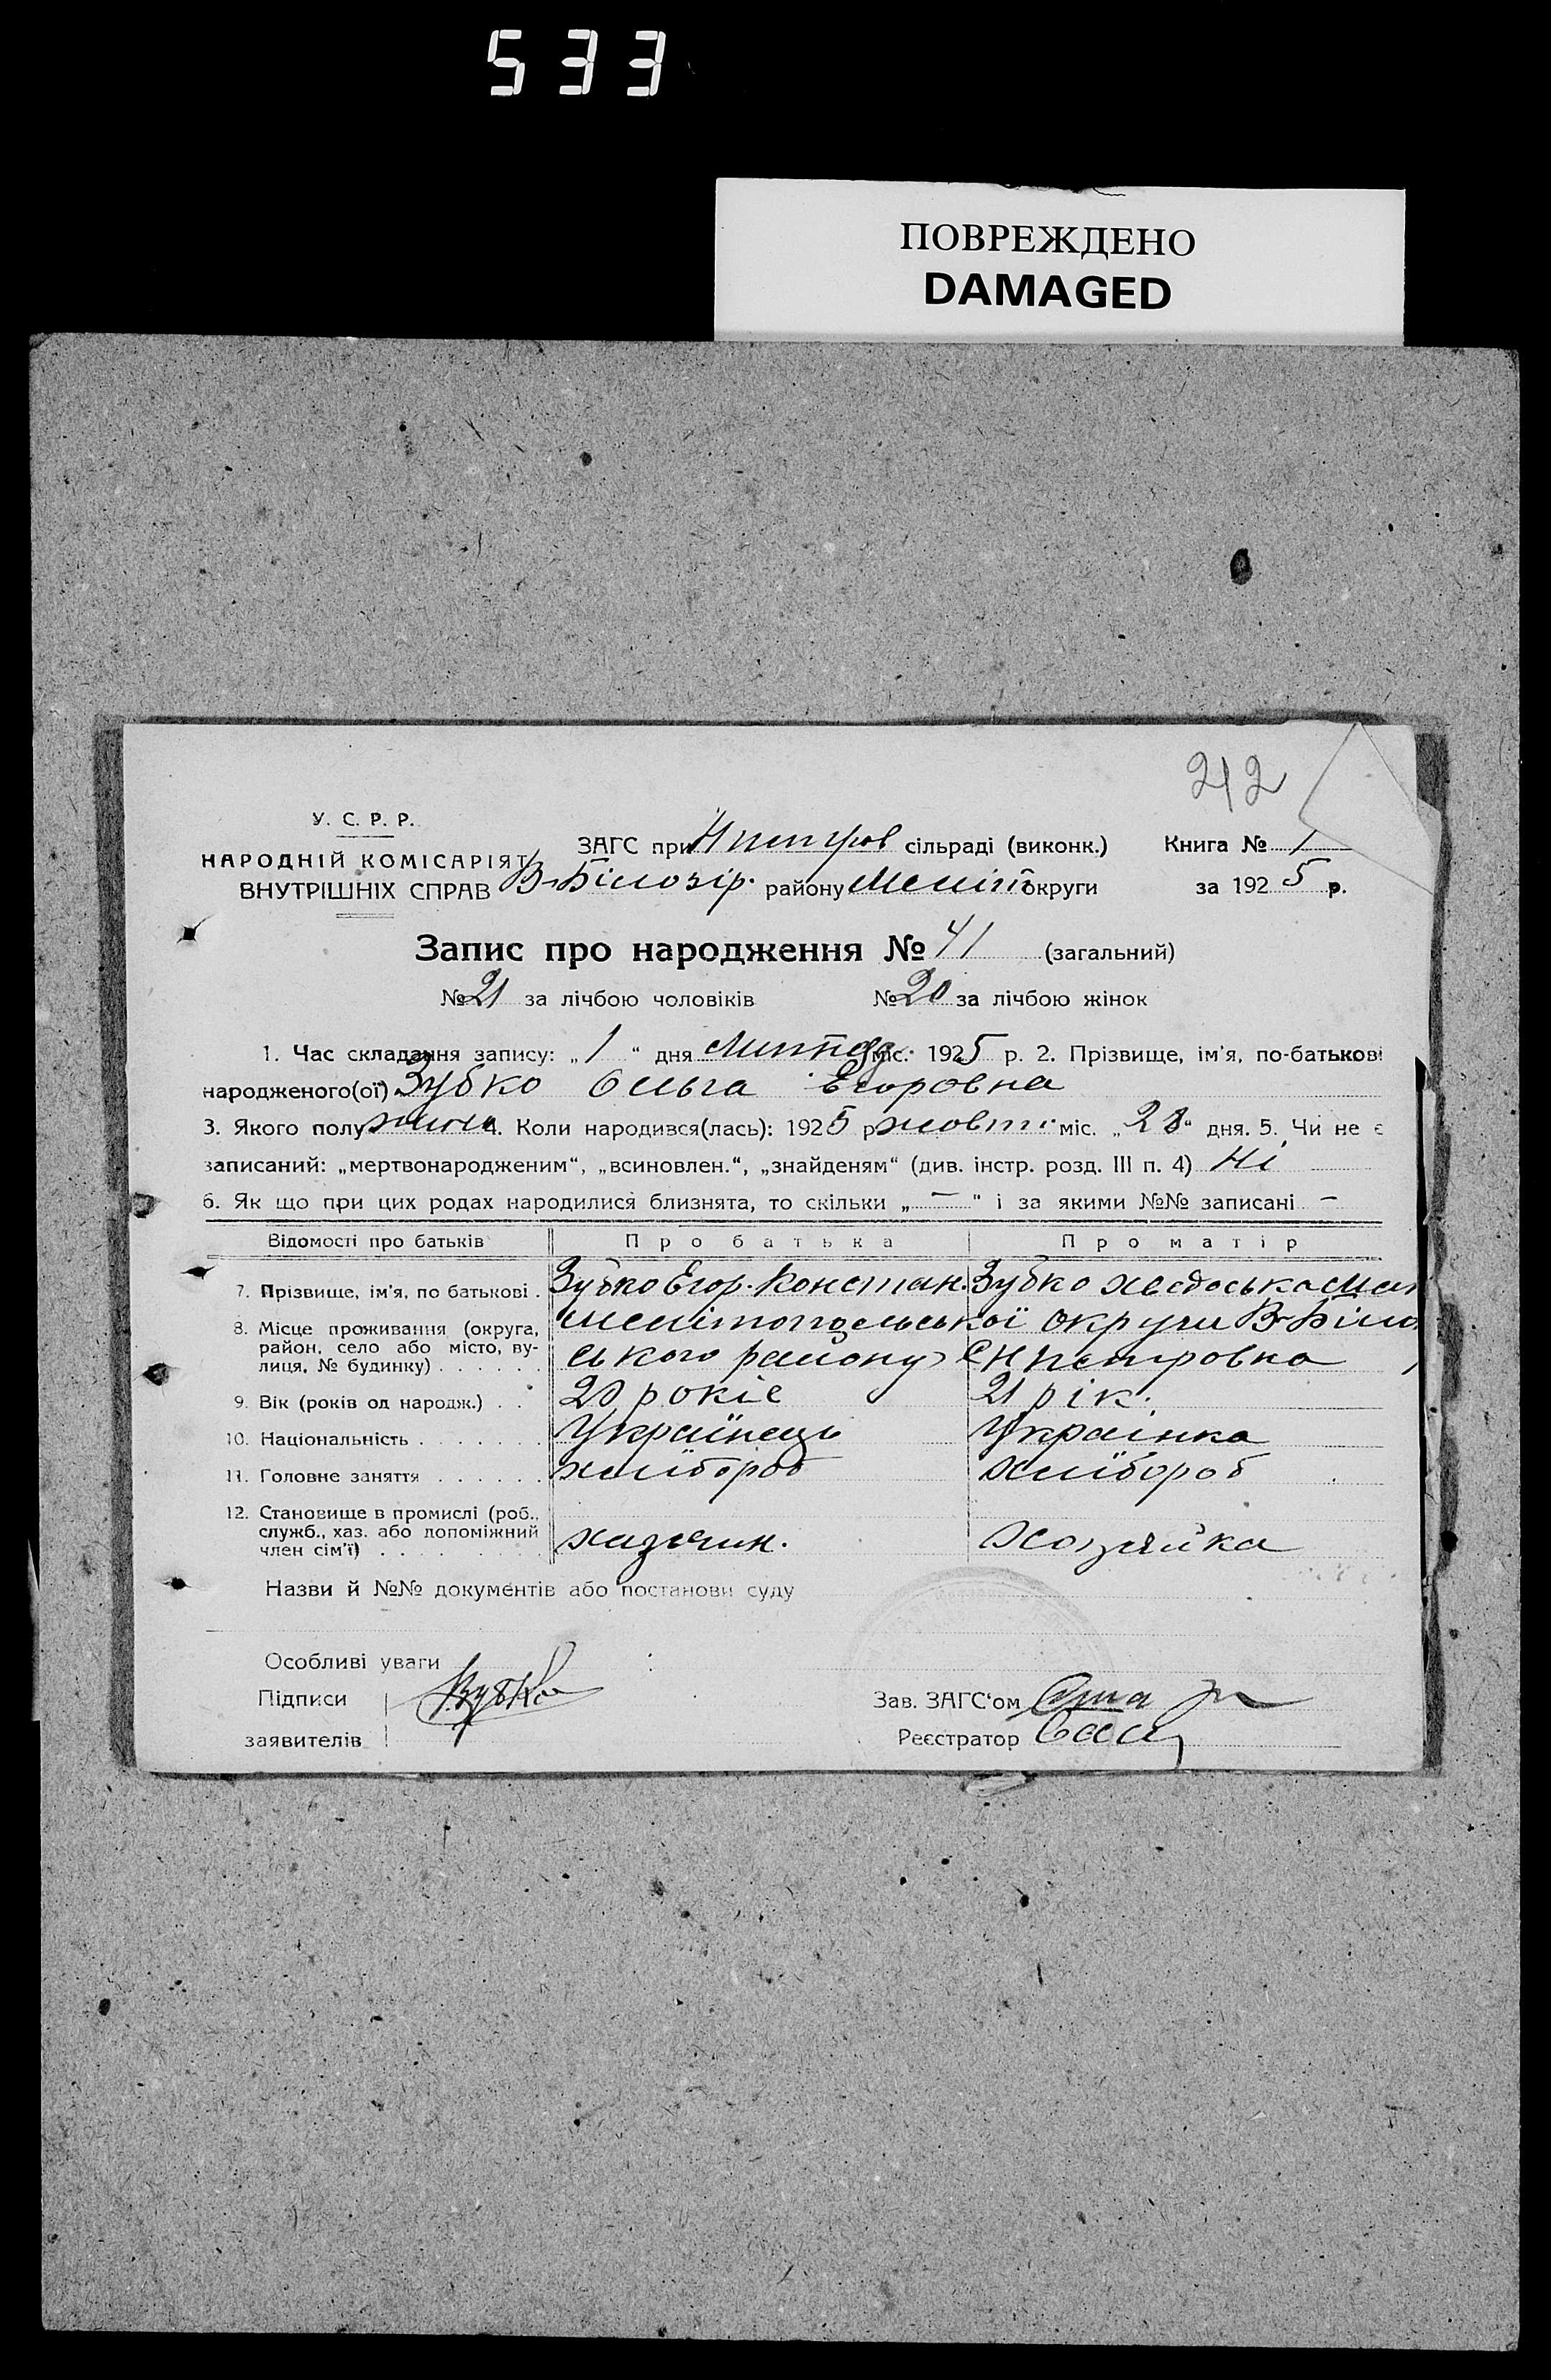 533
ПОВРЕЖДЕНО
DAMAGED
212
У. С. Р. Р.
НАРОДНІЙ КОМІСАРІЯТ
ВНУТРІШНІХ СПРАВ
ЗАГС при Нпетров сільраді (виконк.) Книга № 1
В-Білозір. району Меліт округи за 1925 р.
Запис про народження № 41 (загальний)
№ 21 за лічбою чоловіків № 20 за лічбою жінок
1. Час складання запису: „1“ дня міс. 1925 р. 2. Прізвище, ім'я, по-батькові
народженого(ої) Зубко Ольга Егоровна
3. Якого полу жіноч 4. Коли народився(лась): 1925 р жовтн міс. „28“ дня. 5. Чи не є
записаний: „мертвонародженим“, „всиновлен.“, „знайденям“ (див. інстр. розд. III п. 4) Ні
6. Як що при цих родах народилися близнята, то скільки „—“ і за якими №№ записані —
Відомості про батьків Про батька Про матір
7. Прізвище, ім'я, по батькові . Зубко Егор. Констан. Зубко Хведоська Мат
8. Місце проживання (округа, район, село або місто, вулиця, № будинку) . . . . . Мелітопольської округи В-Біло
ського району с Нпетровка
9. Вік (років од народж.) . . 20 років 21 рік.
10. Національність . . . . . . . Українець Українка
11. Головне заняття . . . . . . хлібороб хлібороб
12. Становище в промислі (роб., служб., хаз. або допоміжний член сім'ї) . . . . . . . хазяин. Хозяйка
Назви й №№ документів або постанови суду
Особливі уваги
Підписи Зубко Зав. ЗАГС'ом
заявителів Реєстратор